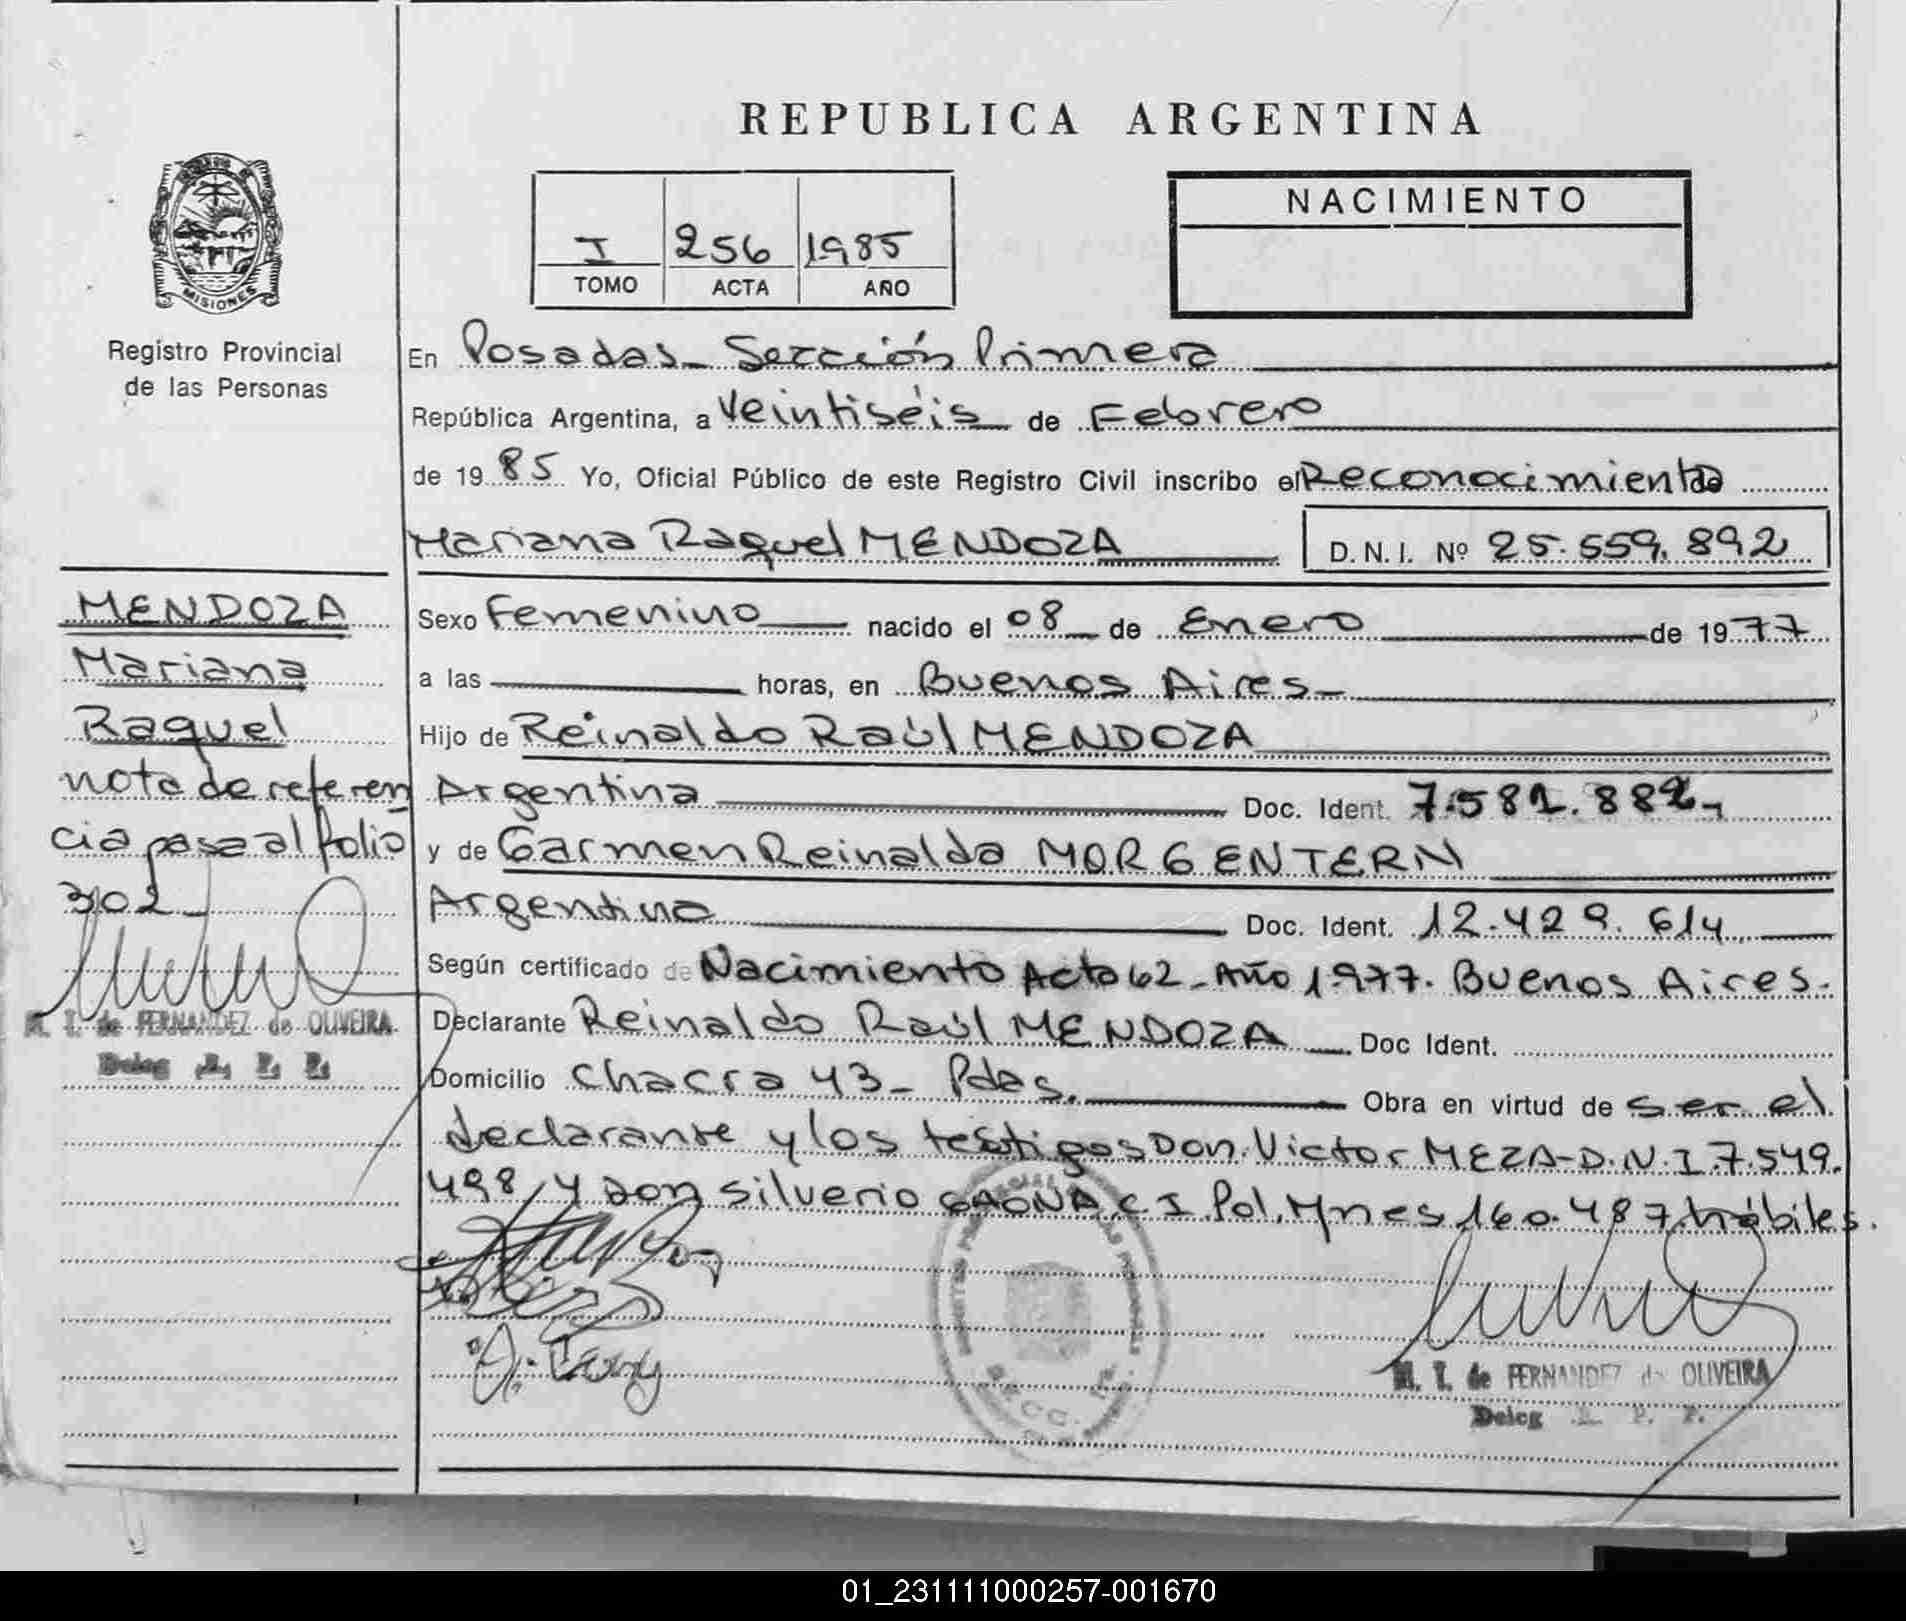 REPUBLICA ARGENTINA
NACIMIENTO
I 256 1985
TOMO ACTA AÑO
MISIONES
Registro Provincial
de las Personas
En Posadas - Sección Primera
República Argentina, a Veintiséis de Febrero
de 1985 Yo, Oficial Público de este Registro Civil inscribo el Reconocimiento
Mariana Raquel MENDOZA D.N.I. Nº 25.559.892
MENDOZA
Mariana
Raquel
nota de referen
cia pasa al folio
302
M. I. de FERNANDEZ de OLIVEIRA
Deleg R. P. P.
Sexo Femenino nacido el 08 de Enero de 1977
a las horas, en Buenos Aires-
Hijo de Reinaldo Raúl MENDOZA
Argentina Doc. Ident. 7.581.882-
y de Carmen Reinalda MORGENTERN
Argentina Doc. Ident. 12.429.614
Según certificado de Nacimiento Acta 62 - Año 1977. Buenos Aires.
Declarante Reinaldo Raúl MENDOZA Doc Ident.
Domicilio Chacra 43 - Pdas. Obra en virtud de ser el
declarante y los testigos Don Victor MEZA - D.N.I 7.549.
498 y don Silverio GAONA C.I Pol. Mnes 160.487 hábiles.
M. I. de FERNANDEZ de OLIVEIRA
Deleg R. P. P.
01_231111000257-001670